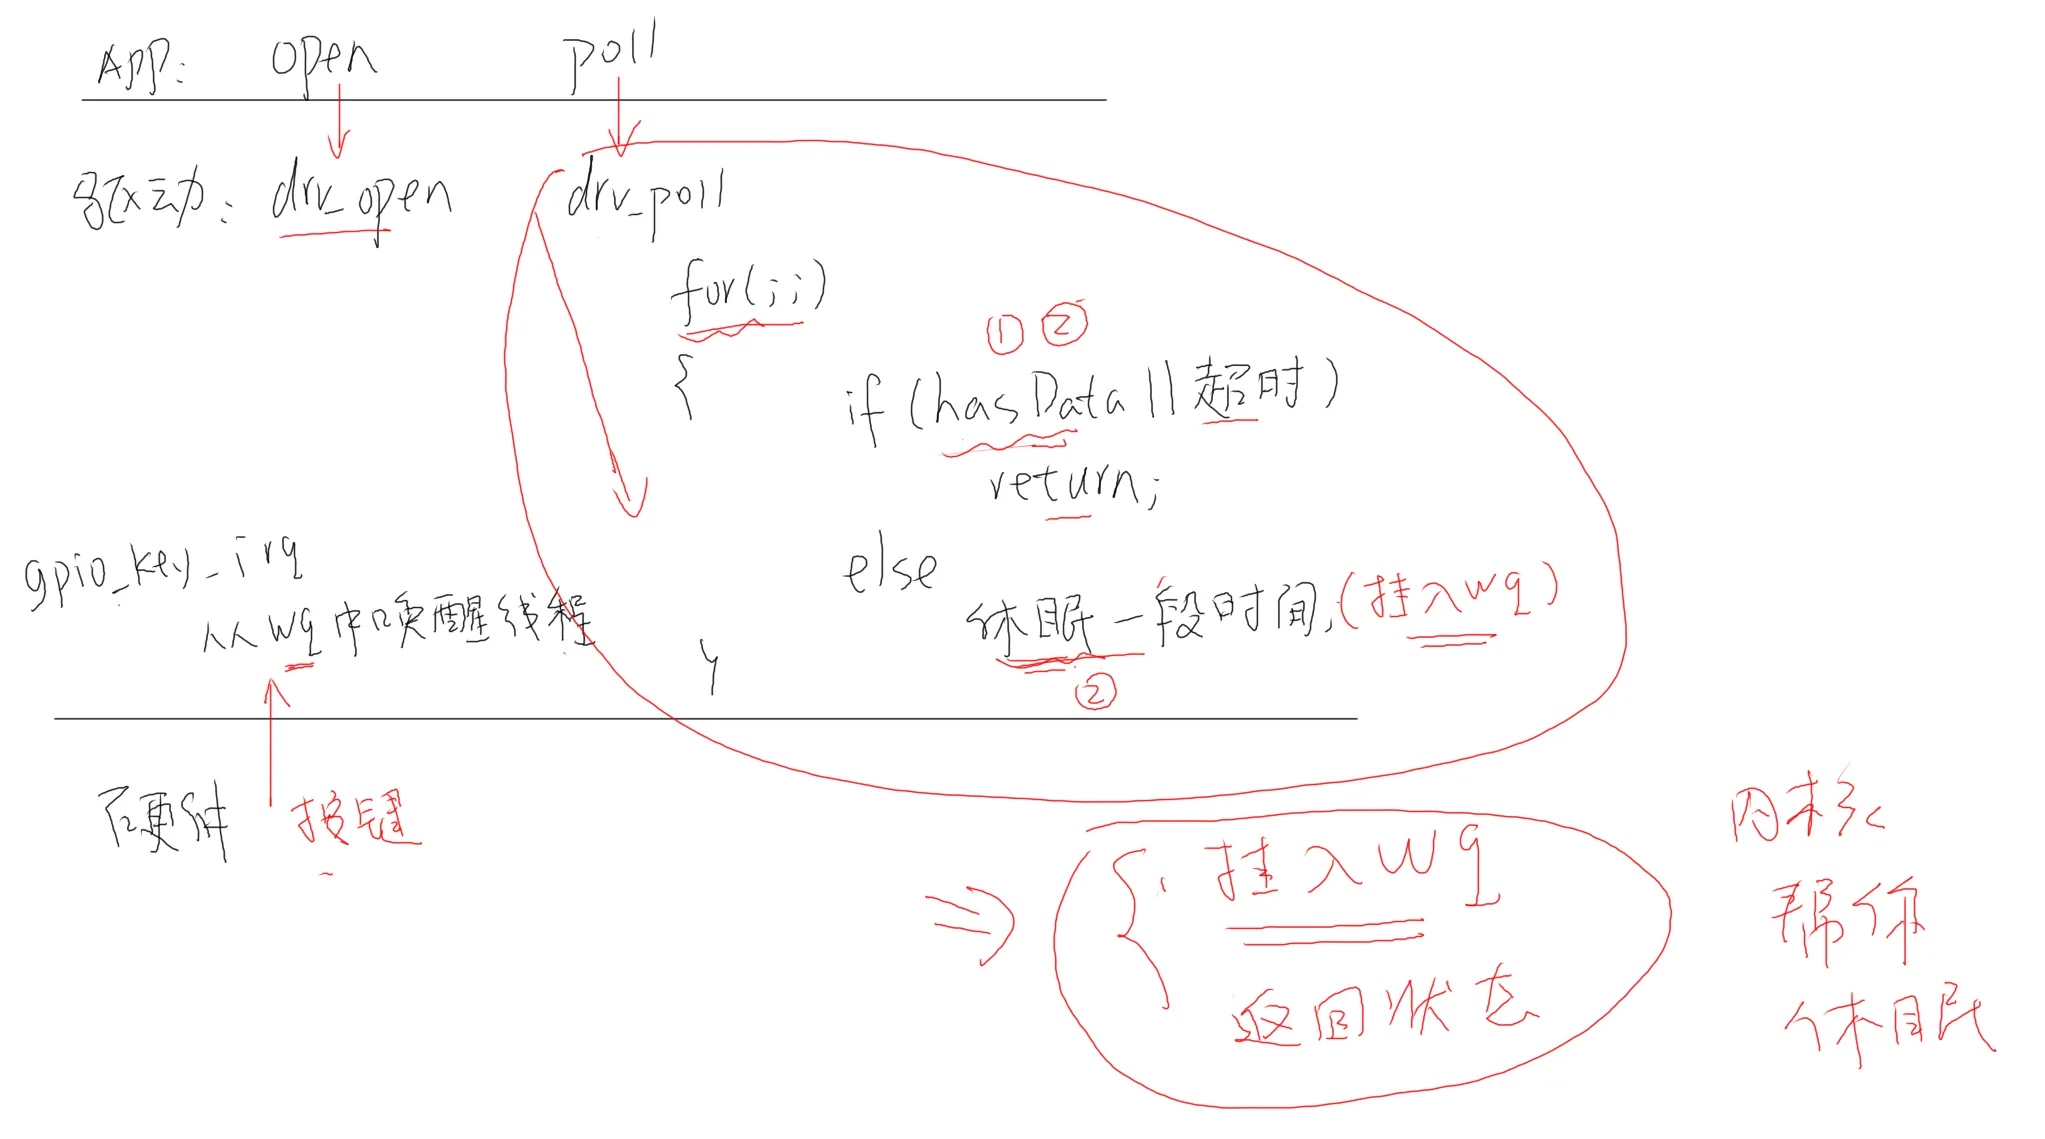 APP: open poll
驱动: drv_open drv_poll
for(;;)
{
① ②
if (hasData || 超时)
return;
else
休眠一段时间, (挂入wq)
②
}
gpio_key_irq
从wq中唤醒线程
硬件 按键
⇒ { 挂入wq
返回状态
内核
帮你
休眠